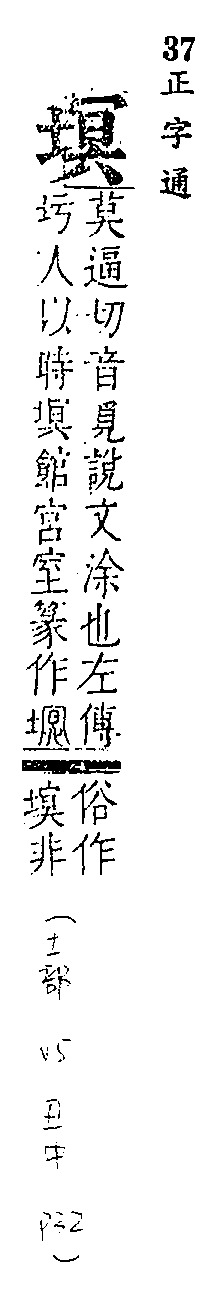 37 正字通
塓
莫逼切音覓說文涂也左傳
圬人以時塓館宮室篆作
俗作
非
(土部 v5 丑中 p32)